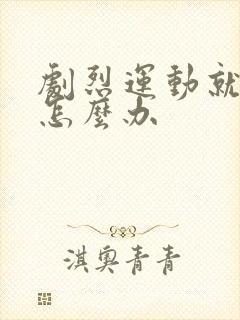 劇烈運動就
怎麼办
淇奥青青